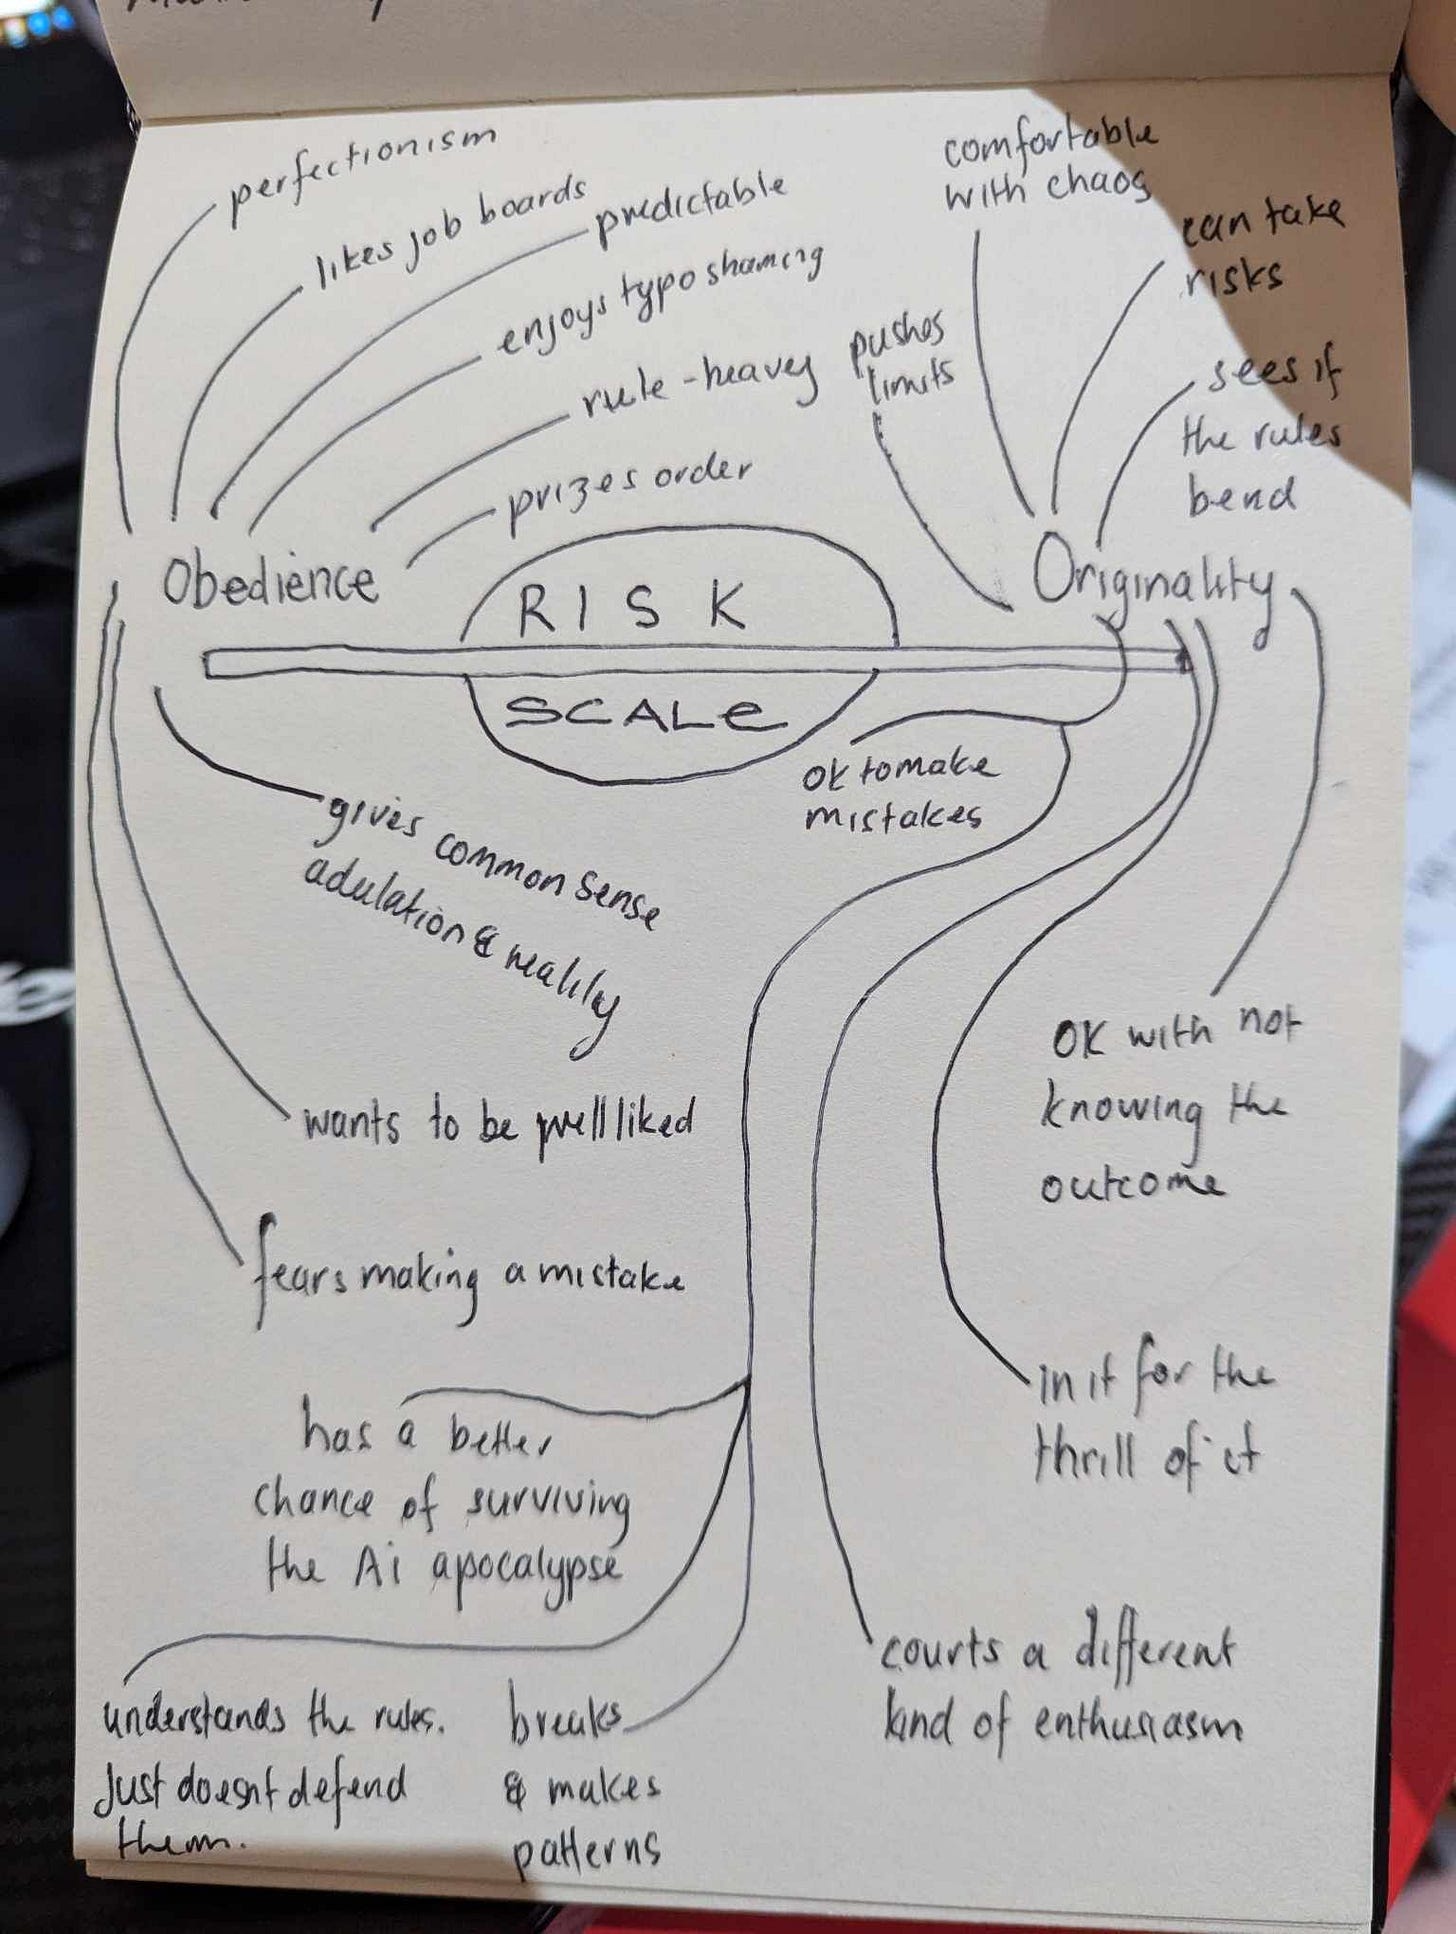 perfectionism
likes job boards
predictable
enjoys typo shaming
rule-heavey
prizes order
Obedience
RISK
SCALe
comfortable
with chaos
can take
risks
pushes
limits
sees if
the rules
bend
Originality
ok to make
mistakes
gives common sense
adulation & reality
wants to be well liked
fears making a mistake
OK with not
knowing the
outcome
in it for the
thrill of it
has a better
chance of surviving
the Ai apocalypse
courts a different
kind of enthusiasm
understands the rules.
Just doesnt defend
them.
breaks
& makes
patterns